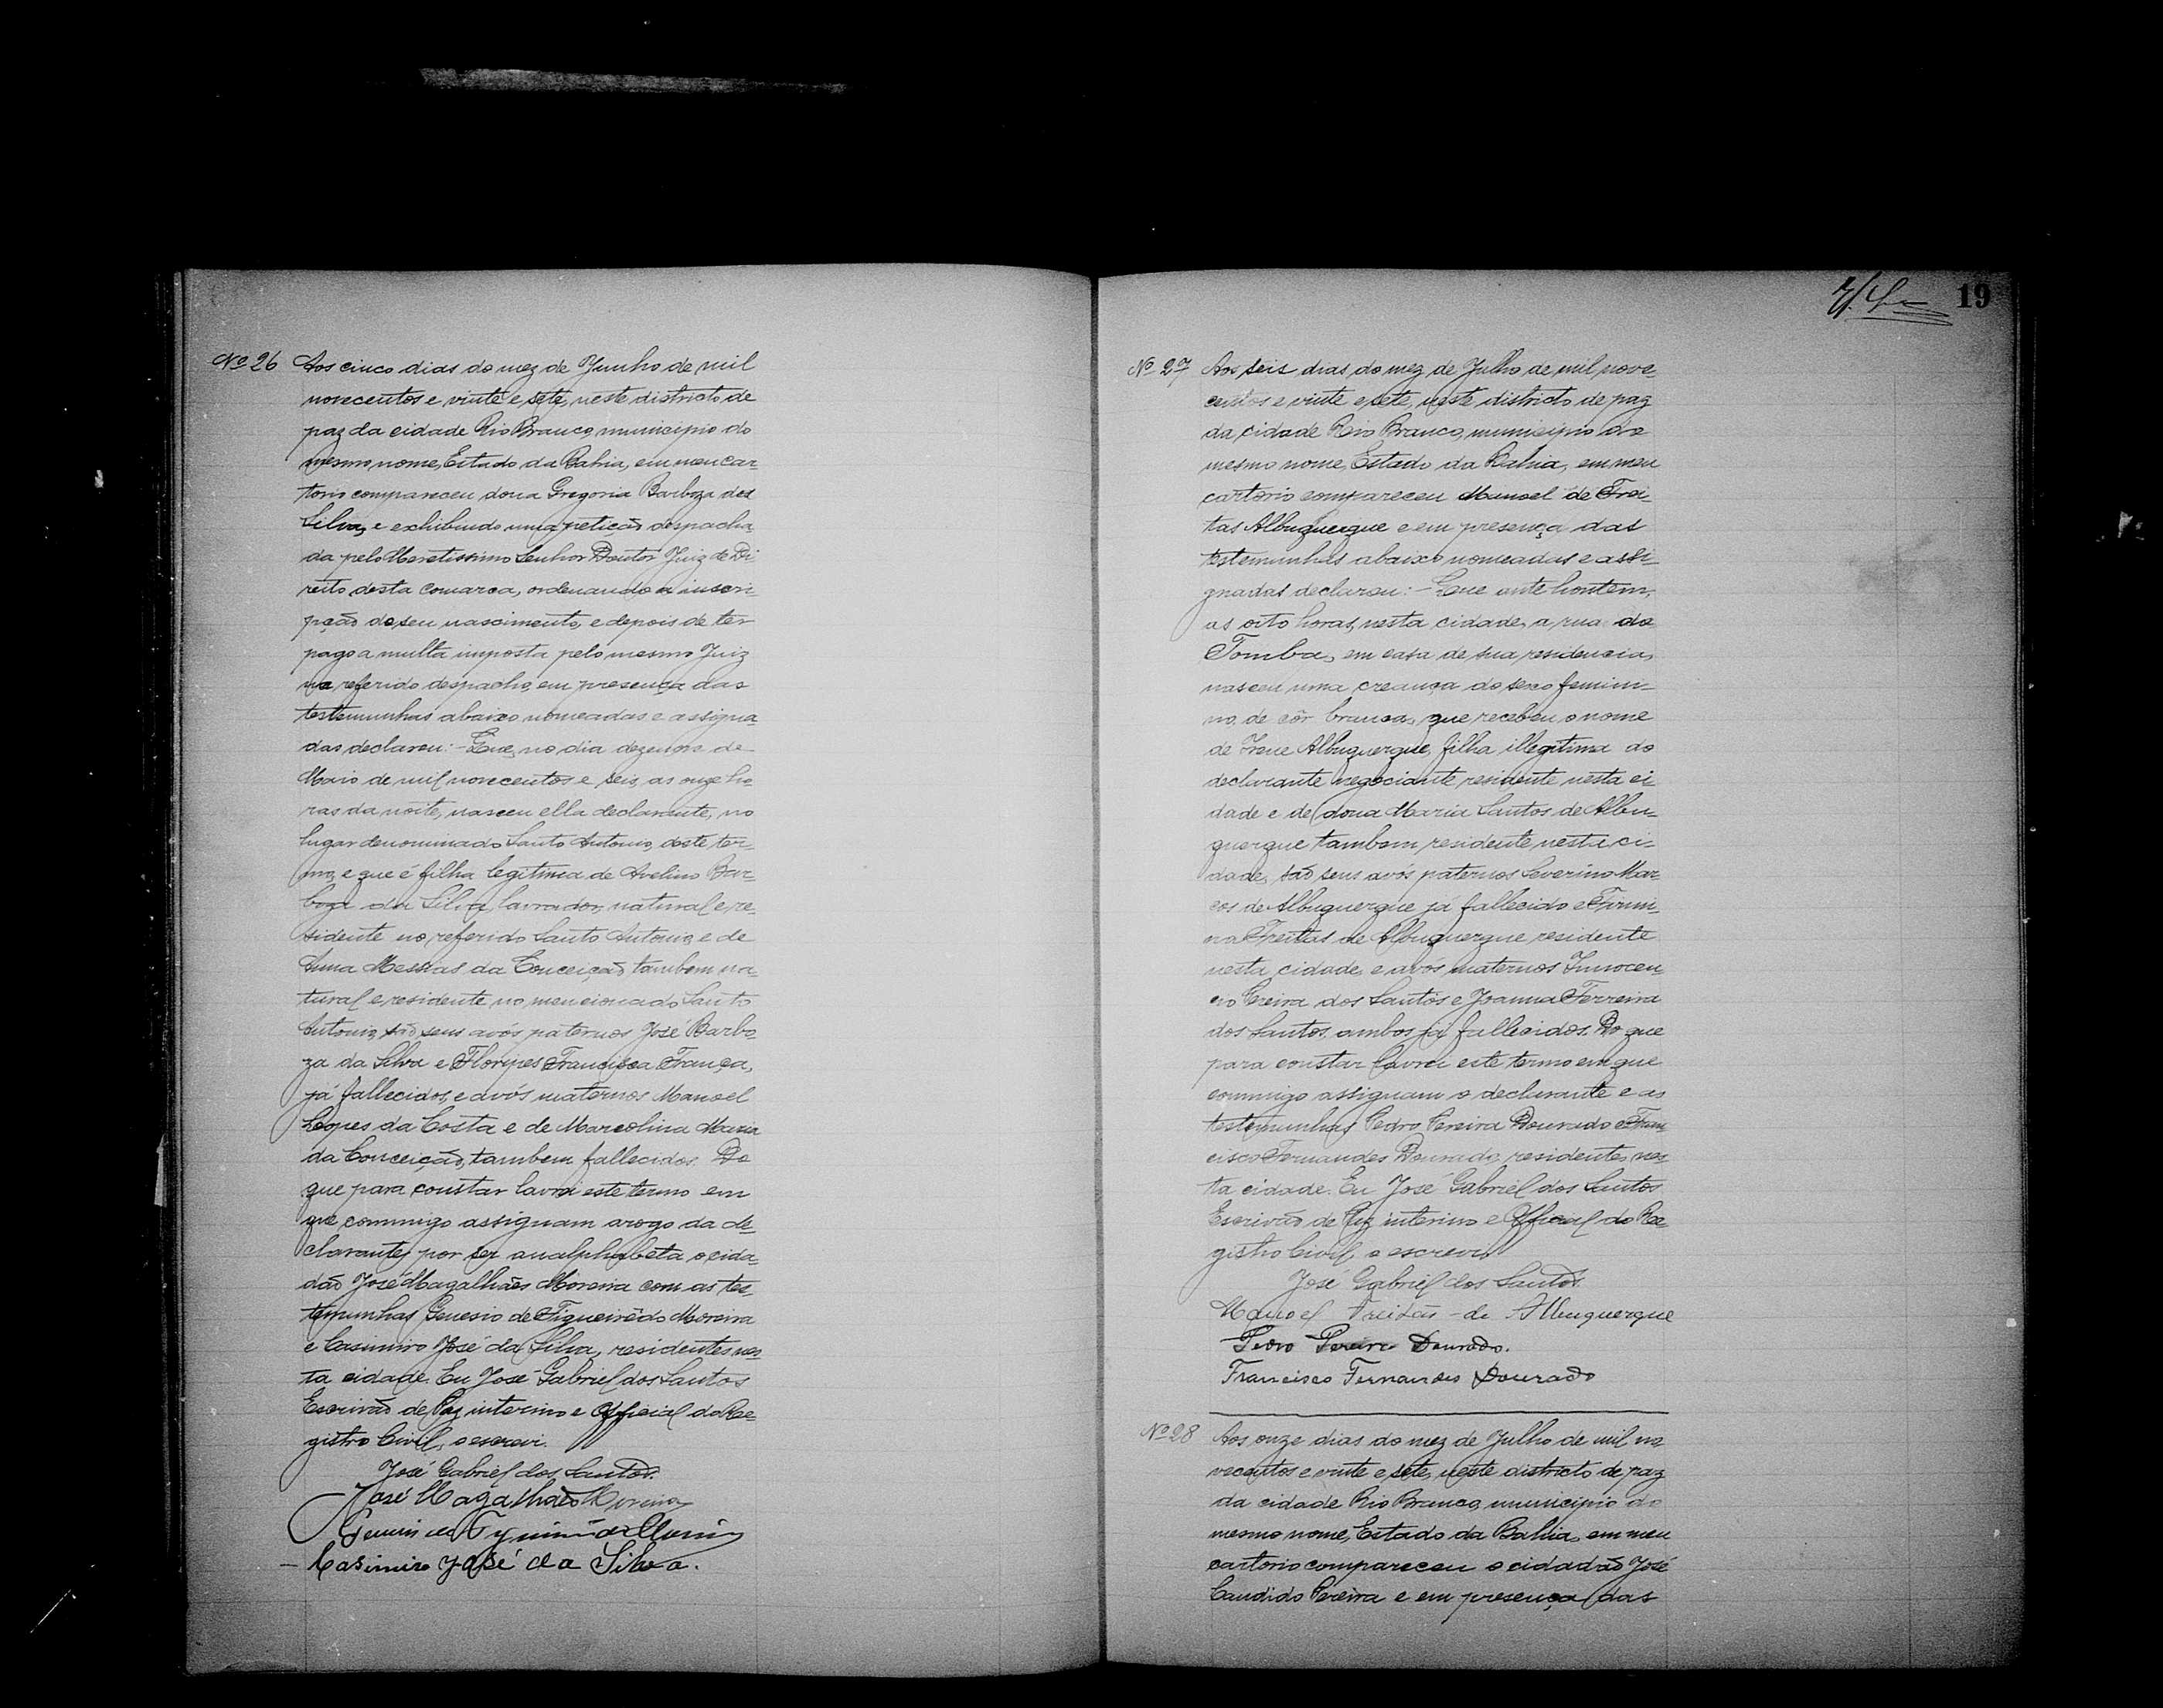 Nº 26 Aos cinco dias do mez de Junho de mil
novecentos e vinte e sete, neste districto de
paz da cidade Rio Branco, municipio do
mesmo nome, Estado da Bahia, em meu car-
torio compareceu dona Gregoria Barboza da
Silva, e exhibindo uma petição despacha-
da pelo Meretissimo Senhor Doutor Juiz de Di-
reito desta comarca, ordenando a inscri-
pção do seu nascimento, e depois de ter
pago a multa imposta pelo mesmo Juiz
no referido despacho, em presença das
testemunhas abaixo nomeadas e assigna-
das declarou: - Que, no dia dezenove de
Maio de mil novecentos e seis, as onze ho-
ras da noite, nasceu ella declarante, no
lugar denominado Santo Antonio, deste ter-
mo, e que é filha legitima de Avelino Bar-
boza da Silva, lavrador, natural e re-
sidente no referido Santo Antonio, e de
Anna Messias da Conceição, tambem na-
tural e residente no mencionado Santo
Antonio, são seus avós paternos José Barbo-
za da Silva e Floripes Francisca França,
já fallecidos, e avós maternos Manoel
Lopes da Costa e de Marcolina Maria
da Conceição, tambem fallecidos. Do
que para constar lavrei este termo em
que commigo assignam arogo da de-
clarante, por ser analphabeta o cida-
dão José Magalhães Moreira com as tes-
temunhas Genesio de Figueirêdo Moreira
e Casimiro José da Silva, residentes nes-
ta cidade. Eu José Gabriel dos Santos
Escrivão de Paz interino e Official do Re-
gistro Civil, o escrevi.
José Gabriel dos Santos.
José Magalhães Moreira
Casimiro José da Silva.
19
Nº 27 Aos seis dias do mez de Julho de mil nove-
centos e vinte e sete, neste districto de paz
da cidade Rio Branco, municipio do
mesmo nome, Estado da Bahia, em meu
cartorio compareceu Manoel de Frei-
tas Albuquerque e em presença das
testemunhas abaixo nomeadas e assi-
gnadas declarou: - Que ante hontem,
as oito horas, nesta cidade, a rua do
Tomba, em casa de sua residencia,
nasceu uma creança do sexo femini-
no, de côr branca, que recebeu o nome
de Irene Albuquerque, filha illegitima do
declarante negociante residente nesta ci-
dade e de dona Maria Santos de Albu-
querque tambem residente nesta ci-
dade, são seus avós paternos Severino Mar-
cos de Albuquerque já fallecido e Firmi-
na Freitas de Albuquerque residente
nesta cidade, e avós maternos Innocen-
cio Pereira dos Santos e Joanna Ferreira
dos Santos, ambos já fallecidos. Do que
para constar lavrei este termo em que
commigo assignam o declarante e as
testemunhas Pedro Pereira Dourado e Fran-
cisco Fernandes Dourado, residentes nes-
ta cidade. Eu José Gabriel dos Santos
Escrivão de Paz interino e Official do Re-
gistro Civil, o escrevi.
José Gabriel dos Santos.
Manoel Freitas de Albuquerque
Pedro Pereira Dourado.
Francisco Fernandes Dourado
Nº 28 Aos onze dias do mez de Julho de mil no-
vecentos e vinte e sete, neste districto de paz
da cidade Rio Branco, municipio do
mesmo nome, Estado da Bahia, em meu
cartorio compareceu o cidadão José
Candido Pereira e em presença das